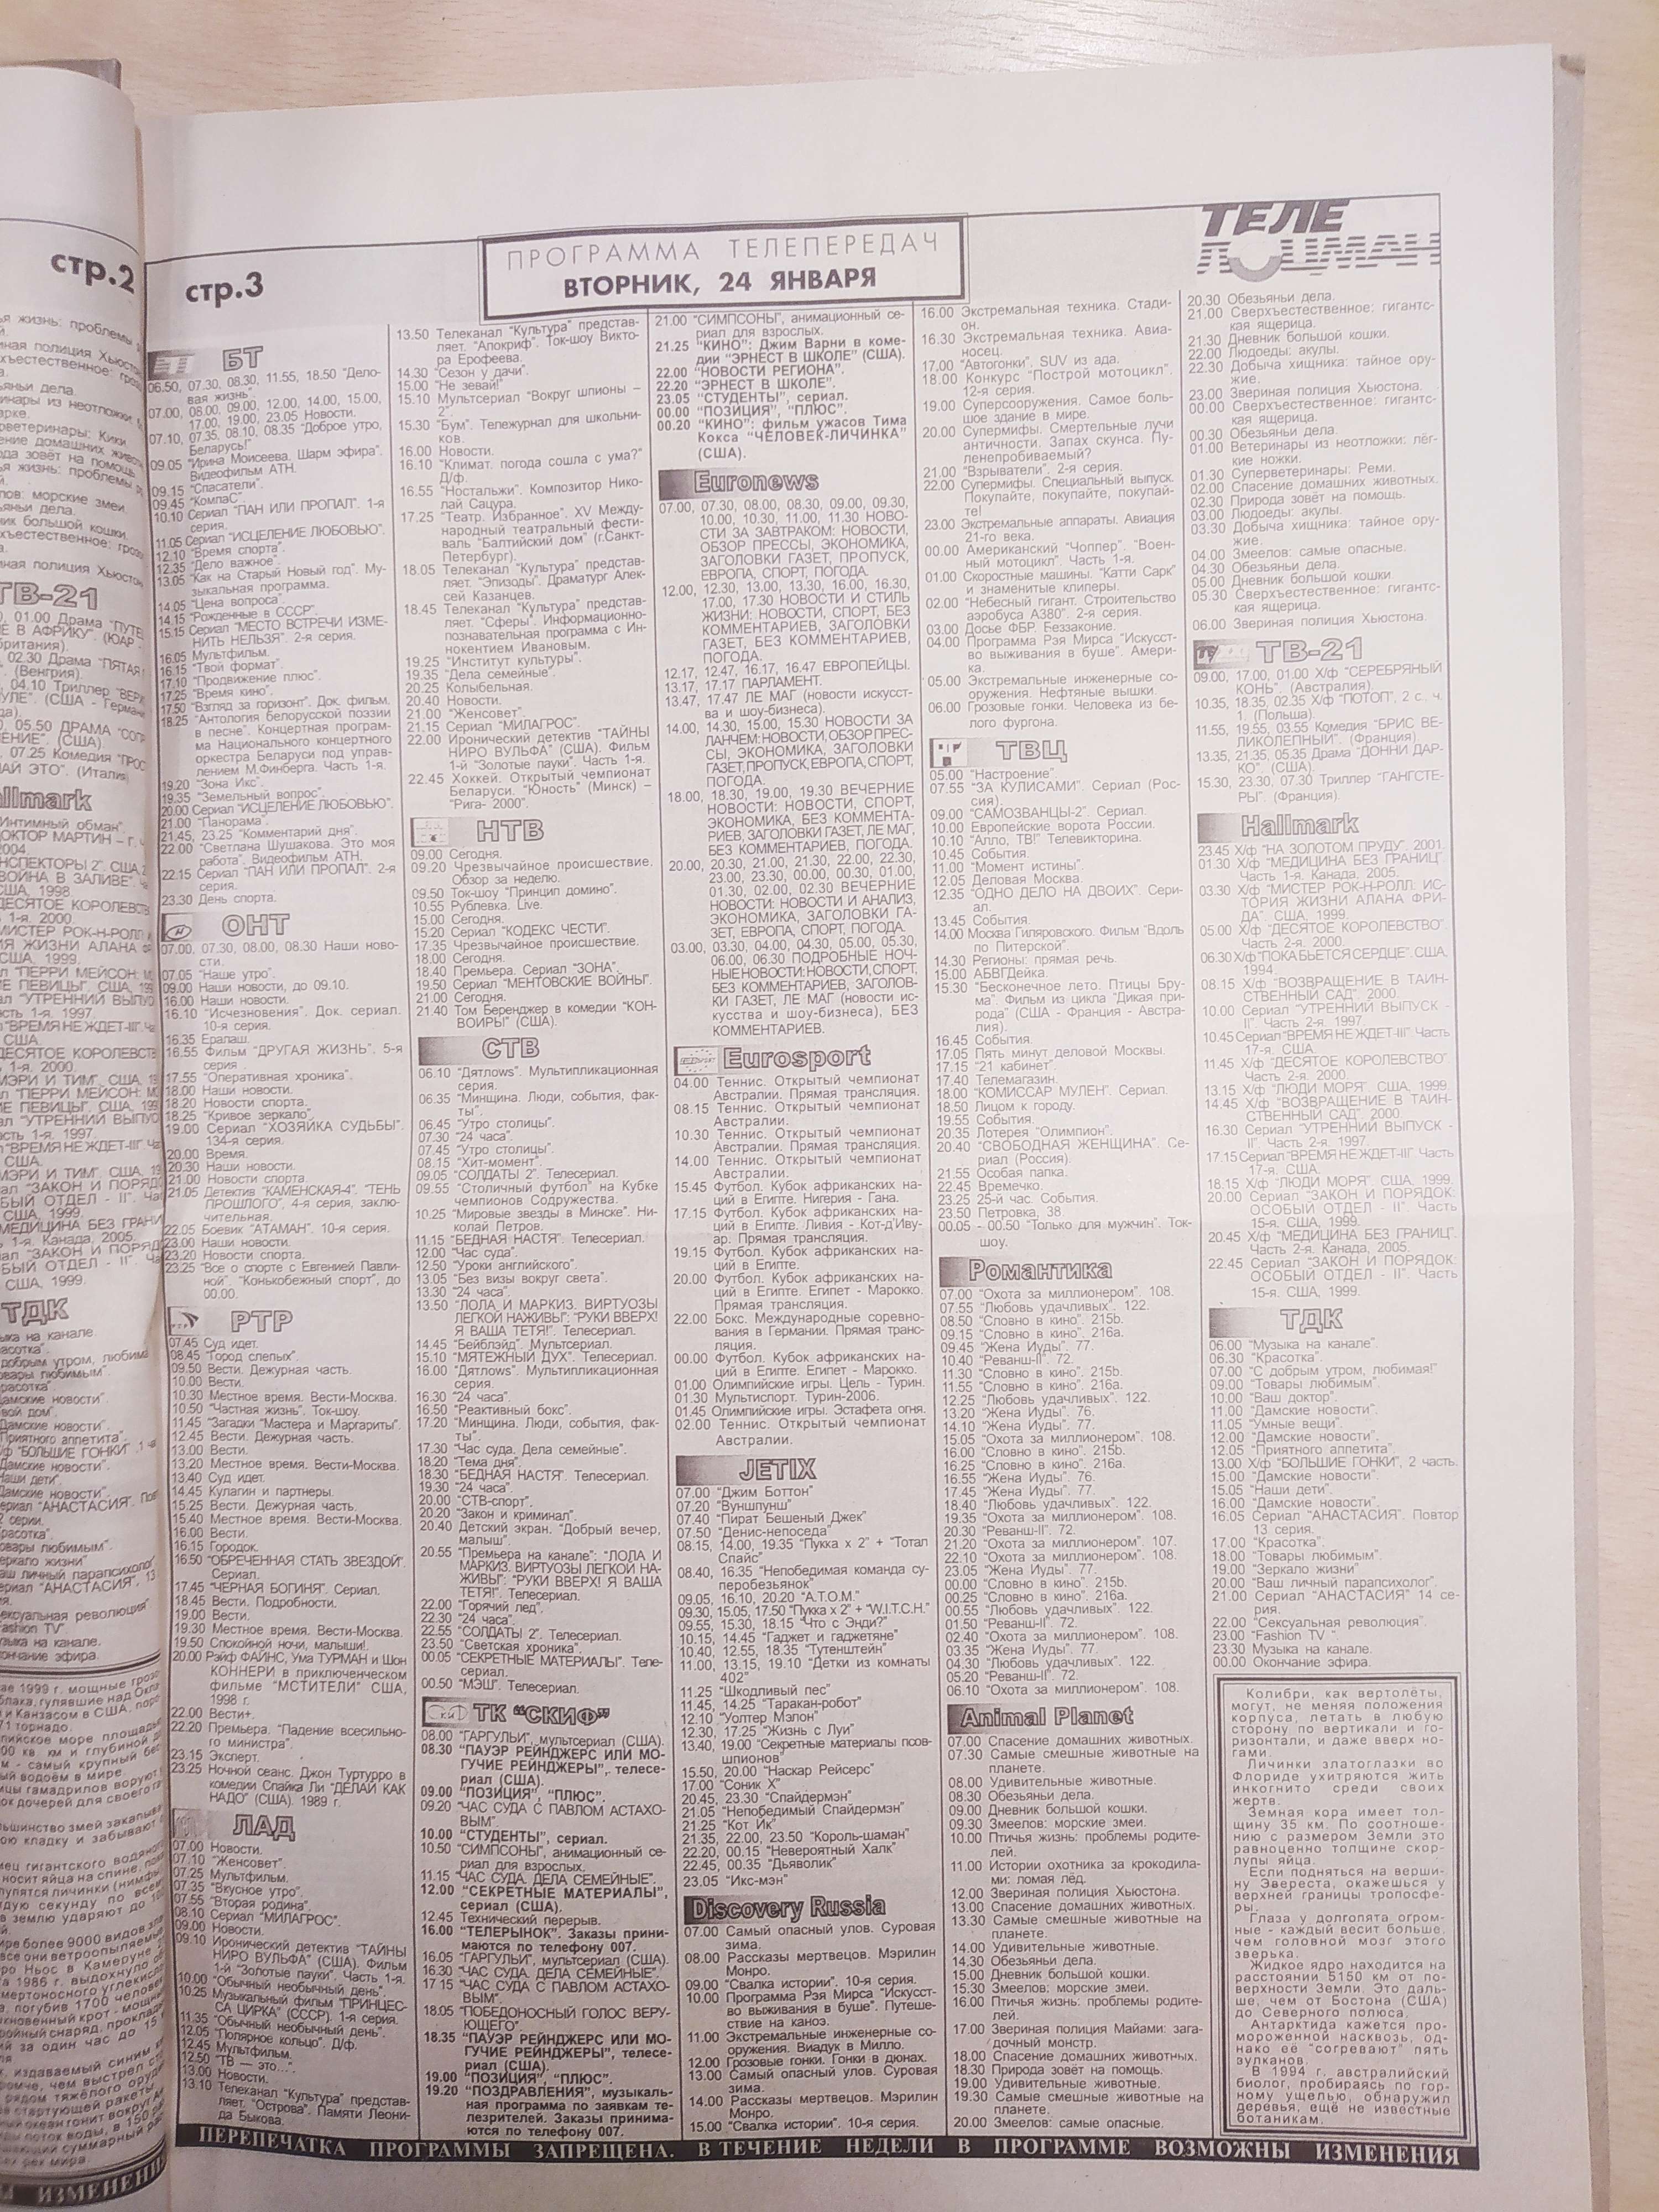 стр.2
стр.3
ПРОГРАММА ТЕЛЕПЕРЕДАЧ
ВТОРНИК, 24 ЯНВАРЯ
ТЕЛЕ
ЛОЦМАН
БТ
06.50, 07.30, 08.30, 11.55, 18.50 "Дело-
вая жизнь".
07.00, 08.00, 09.00, 12.00, 14.00, 15.00,
17.00, 19.00, 23.05 Новости.
07.10, 07.35, 08.10, 08.35 "Доброе утро,
Беларусь!"
09.05 "Ирина Моисеева. Шарм эфира".
Видеофильм АТН.
09.15 "Спасатели".
09.45 "КомпаС".
10.10 Сериал "ПАН ИЛИ ПРОПАЛ". 1-я
серия.
11.05 Сериал "ИСЦЕЛЕНИЕ ЛЮБОВЬЮ".
12.10 "Время спорта".
12.35 "Дело важное".
13.05 "Как на Старый Новый год". Му-
зыкальная программа.
14.05 "Цена вопроса".
14.15 "Рожденные в СССР".
15.15 Сериал "МЕСТО ВСТРЕЧИ ИЗМЕ-
НИТЬ НЕЛЬЗЯ". 2-я серия.
16.05 Мультфильм.
16.15 "Твой формат".
17.10 "Продвижение плюс".
17.25 "Время кино".
17.50 "Взгляд за горизонт". Док. фильм.
18.25 "Антология белорусской поэзии
в песне". Концертная програм-
ма Национального концертного
оркестра Беларуси под управ-
лением М.Финберга. Часть 1-я.
19.20 "Зона Икс".
19.35 "Земельный вопрос".
20.00 Сериал "ИСЦЕЛЕНИЕ ЛЮБОВЬЮ".
21.00 "Панорама".
21.45, 23.25 "Комментарий дня".
22.00 "Светлана Шушакова. Это моя
работа". Видеофильм АТН.
22.15 Сериал "ПАН ИЛИ ПРОПАЛ". 2-я
серия.
23.30 День спорта.
ОНТ
07.00, 07.30, 08.00, 08.30 Наши ново-
сти.
07.05 "Наше утро".
09.00 Наши новости, до 09.10.
16.00 Наши новости.
16.10 "Исчезновения". Док. сериал.
10-я серия.
16.35 Ералаш.
16.55 Фильм "ДРУГАЯ ЖИЗНЬ". 5-я
серия.
17.55 "Оперативная хроника".
18.00 Наши новости.
18.20 Новости спорта.
18.25 "Кривое зеркало".
19.00 Сериал "ХОЗЯЙКА СУДЬБЫ".
134-я серия.
20.00 Время.
20.30 Наши новости.
21.00 Новости спорта.
21.05 Детектив "КАМЕНСКАЯ-4". "ТЕНЬ
ПРОШЛОГО", 4-я серия, заклю-
чительная.
22.05 Боевик "АТАМАН". 10-я серия.
23.00 Наши новости.
23.20 Новости спорта.
23.25 "Все о спорте с Евгенией Павли-
ной". "Конькобежный спорт", до
00.00.
РТР
07.45 Суд идет.
08.45 "Город слепых".
09.50 Вести. Дежурная часть.
10.00 Вести.
10.30 Местное время. Вести-Москва.
10.50 "Частная жизнь". Ток-шоу.
11.45 "Загадки "Мастера и Маргариты".
12.45 Вести. Дежурная часть.
13.00 Вести.
13.20 Местное время. Вести-Москва.
13.40 Суд идет.
14.45 Кулагин и партнеры.
15.25 Вести. Дежурная часть.
15.40 Местное время. Вести-Москва.
16.00 Вести.
16.15 Городок.
16.50 "ОБРЕЧЕННАЯ СТАТЬ ЗВЕЗДОЙ".
Сериал.
17.45 "ЧЕРНАЯ БОГИНЯ". Сериал.
18.45 Вести. Подробности.
19.00 Вести.
19.30 Местное время. Вести-Москва.
19.50 Спокойной ночи, малыши!.
20.00 Рэйф ФАЙНС, Ума ТУРМАН и Шон
КОННЕРИ в приключенческом
фильме "МСТИТЕЛИ" США,
1998 г.
22.00 Вести+.
22.20 Премьера. "Падение всесильно-
го министра".
23.15 Эксперт.
23.25 Ночной сеанс. Джон Туртурро в
комедии Спайка Ли "ДЕЛАЙ КАК
НАДО" (США). 1989 г.
ЛАД
07.00 Новости.
07.10 "Женсовет".
07.25 Мультфильм.
07.35 "Вкусное утро".
07.55 "Вторая родина".
08.10 Сериал "МИЛАГРОС".
09.00 Новости.
09.10 Иронический детектив "ТАЙНЫ
НИРО ВУЛЬФА" (США). Фильм
1-й "Золотые пауки". Часть 1-я.
10.00 "Обычный необычный день".
10.25 Музыкальный фильм "ПРИНЦЕС-
СА ЦИРКА" (СССР). 1-я серия.
11.35 "Обычный необычный день".
12.05 "Полярное кольцо". Д/ф.
12.45 Мультфильм.
12.50 "ТВ — это...".
13.00 Новости.
13.10 Телеканал "Культура" представ-
ляет. "Острова". Памяти Леони-
да Быкова.
13.50 Телеканал "Культура" представ-
ляет. "Апокриф". Ток-шоу Викто-
ра Ерофеева.
14.30 "Сезон у дачи".
15.00 "Не зевай!"
15.10 Мультсериал "Вокруг шпионы –
2".
15.30 "Бум". Тележурнал для школьни-
ков.
16.00 Новости.
16.10 "Климат. погода сошла с ума?"
Д/ф.
16.55 "Ностальжи". Композитор Нико-
лай Сацура.
17.25 "Театр. Избранное". XV Между-
народный театральный фести-
валь "Балтийский дом" (г.Санкт-
Петербург).
18.05 Телеканал "Культура" представ-
ляет. "Эпизоды". Драматург Алек-
сей Казанцев.
18.45 Телеканал "Культура" представ-
ляет. "Сферы". Информационно-
познавательная программа с Ин-
нокентием Ивановым.
19.25 "Институт культуры".
19.35 "Дела семейные".
20.25 Колыбельная.
20.40 Новости.
21.00 "Женсовет".
21.15 Сериал "МИЛАГРОС".
22.00 Иронический детектив "ТАЙНЫ
НИРО ВУЛЬФА" (США). Фильм
1-й "Золотые пауки". Часть 1-я.
22.45 Хоккей. Открытый чемпионат
Беларуси. "Юность" (Минск) –
"Рига- 2000".
НТВ
09.00 Сегодня.
09.20 Чрезвычайное происшествие.
Обзор за неделю.
09.50 Ток-шоу "Принцип домино".
10.55 Рублевка. Live.
15.00 Сегодня.
15.20 Сериал "КОДЕКС ЧЕСТИ".
17.35 Чрезвычайное происшествие.
18.00 Сегодня.
18.40 Премьера. Сериал "ЗОНА".
19.50 Сериал "МЕНТОВСКИЕ ВОЙНЫ".
21.00 Сегодня.
21.40 Том Беренджер в комедии "КОН-
ВОИРЫ" (США).
СТВ
06.10 "Дятлоws". Мультипликационная
серия.
06.35 "Минщина. Люди, события, фак-
ты".
06.45 "Утро столицы".
07.30 "24 часа".
07.45 "Утро столицы".
08.15 "Хит-момент".
09.05 "СОЛДАТЫ 2". Телесериал.
09.55 "Столичный футбол" на Кубке
чемпионов Содружества.
10.25 "Мировые звезды в Минске". Ни-
колай Петров.
11.15 "БЕДНАЯ НАСТЯ". Телесериал.
12.00 "Час суда".
12.50 "Уроки английского".
13.05 "Без визы вокруг света".
13.30 "24 часа".
13.50 "ЛОЛА И МАРКИЗ. ВИРТУОЗЫ
ЛЕГКОЙ НАЖИВЫ": "РУКИ ВВЕРХ!
Я ВАША ТЕТЯ!". Телесериал.
14.45 "Бейблэйд". Мультсериал.
15.10 "МЯТЕЖНЫЙ ДУХ". Телесериал.
16.00 "Дятлоws". Мультипликационная
серия.
16.30 "24 часа".
16.50 "Реактивный бокс".
17.20 "Минщина. Люди, события, фак-
ты".
17.30 "Час суда. Дела семейные".
18.20 "Тема дня".
18.30 "БЕДНАЯ НАСТЯ". Телесериал.
19.30 "24 часа".
20.00 "СТВ-спорт".
20.20 "Закон и криминал".
20.40 Детский экран. "Добрый вечер,
малыш".
20.55 "Премьера на канале": "ЛОЛА И
МАРКИЗ. ВИРТУОЗЫ ЛЕГКОЙ НА-
ЖИВЫ": "РУКИ ВВЕРХ! Я ВАША
ТЕТЯ!". Телесериал.
22.00 "Горячий лед".
22.30 "24 часа".
22.55 "СОЛДАТЫ 2". Телесериал.
23.50 "Светская хроника".
00.05 "СЕКРЕТНЫЕ МАТЕРИАЛЫ". Теле-
сериал.
00.50 "МЭШ". Телесериал.
ТК "СКИФ"
08.00 "ГАРГУЛЬИ", мультсериал (США).
08.30 "ПАУЭР РЕЙНДЖЕРС ИЛИ МО-
ГУЧИЕ РЕЙНДЖЕРЫ", телесе-
риал (США).
09.00 "ПОЗИЦИЯ", "ПЛЮС".
09.20 "ЧАС СУДА С ПАВЛОМ АСТАХО-
ВЫМ".
10.00 "СТУДЕНТЫ", сериал.
10.50 "СИМПСОНЫ", анимационный се-
риал для взрослых.
11.15 "ЧАС СУДА. ДЕЛА СЕМЕЙНЫЕ".
12.00 "СЕКРЕТНЫЕ МАТЕРИАЛЫ",
сериал (США).
12.45 Технический перерыв.
16.00 "ТЕЛЕРЫНОК". Заказы прини-
маются по телефону 007.
16.05 "ГАРГУЛЬИ", мультсериал (США).
16.30 "ЧАС СУДА. ДЕЛА СЕМЕЙНЫЕ".
17 15 "ЧАС СУДА С ПАВЛОМ АСТАХО-
ВЫМ".
18.05 "ПОБЕДОНОСНЫЙ ГОЛОС ВЕРУ-
ЮЩЕГО".
18.35 "ПАУЭР РЕЙНДЖЕРС ИЛИ МО-
ГУЧИЕ РЕЙНДЖЕРЫ", телесе-
риал (США).
19.00 "ПОЗИЦИЯ", "ПЛЮС".
19.20 "ПОЗДРАВЛЕНИЯ", музыкаль-
ная программа по заявкам те-
лезрителей. Заказы принима-
ются по телефону 007.
21.00 "СИМПСОНЫ", анимационный се-
риал для взрослых.
21.25 "КИНО": Джим Варни в коме-
дии "ЭРНЕСТ В ШКОЛЕ" (США).
22.00 "НОВОСТИ РЕГИОНА".
22.20 "ЭРНЕСТ В ШКОЛЕ".
23.05 "СТУДЕНТЫ", сериал.
00.00 "ПОЗИЦИЯ", "ПЛЮС".
00.20 "КИНО": фильм ужасов Тима
Кокса "ЧЕЛОВЕК-ЛИЧИНКА"
(США).
Euronews
07.00, 07.30, 08.00, 08.30, 09.00, 09.30,
10.00, 10.30, 11.00, 11.30 НОВО-
СТИ ЗА ЗАВТРАКОМ: НОВОСТИ,
ОБЗОР ПРЕССЫ, ЭКОНОМИКА,
ЗАГОЛОВКИ ГАЗЕТ, ПРОПУСК,
ЕВРОПА, СПОРТ, ПОГОДА.
12.00, 12.30, 13.00, 13.30, 16.00, 16.30,
17.00, 17.30 НОВОСТИ И СТИЛЬ
ЖИЗНИ: НОВОСТИ, СПОРТ, БЕЗ
КОММЕНТАРИЕВ, ЗАГОЛОВКИ
ГАЗЕТ, БЕЗ КОММЕНТАРИЕВ,
ПОГОДА.
12.17, 12.47, 16.17, 16.47 ЕВРОПЕЙЦЫ.
13.17, 17.17 ПАРЛАМЕНТ.
13.47, 17.47 ЛЕ МАГ (новости искусст-
ва и шоу-бизнеса).
14.00, 14.30, 15.00, 15.30 НОВОСТИ ЗА
ЛАНЧЕМ: НОВОСТИ, ОБЗОР ПРЕС-
СЫ, ЭКОНОМИКА, ЗАГОЛОВКИ
ГАЗЕТ, ПРОПУСК, ЕВРОПА, СПОРТ,
ПОГОДА.
18.00, 18.30, 19.00, 19.30 ВЕЧЕРНИЕ
НОВОСТИ: НОВОСТИ, СПОРТ,
ЭКОНОМИКА, БЕЗ КОММЕНТА-
РИЕВ, ЗАГОЛОВКИ ГАЗЕТ, ЛЕ МАГ,
БЕЗ КОММЕНТАРИЕВ, ПОГОДА.
20.00, 20.30, 21.00, 21.30, 22.00, 22.30,
23.00, 23.30, 00.00, 00.30, 01.00,
01.30, 02.00, 02.30 ВЕЧЕРНИЕ
НОВОСТИ: НОВОСТИ И АНАЛИЗ,
ЭКОНОМИКА, ЗАГОЛОВКИ ГА-
ЗЕТ, ЕВРОПА, СПОРТ, ПОГОДА.
03.00, 03.30, 04.00, 04.30, 05.00, 05.30,
06.00, 06.30 ПОДРОБНЫЕ НОЧ-
НЫЕ НОВОСТИ: НОВОСТИ, СПОРТ,
БЕЗ КОММЕНТАРИЕВ, ЗАГОЛОВ-
КИ ГАЗЕТ, ЛЕ МАГ (новости ис-
кусства и шоу-бизнеса), БЕЗ
КОММЕНТАРИЕВ.
Eurosport
04.00 Теннис. Открытый чемпионат
Австралии. Прямая трансляция.
08.15 Теннис. Открытый чемпионат
Австралии.
10.30 Теннис. Открытый чемпионат
Австралии. Прямая трансляция.
14.00 Теннис. Открытый чемпионат
Австралии.
15.45 Футбол. Кубок африканских на-
ций в Египте. Нигерия - Гана.
17.15 Футбол. Кубок африканских на-
ций в Египте. Ливия - Кот-д'Иву-
ар. Прямая трансляция.
19.15 Футбол. Кубок африканских на-
ций в Египте.
20.00 Футбол. Кубок африканских на-
ций в Египте. Египет - Марокко.
Прямая трансляция.
22.00 Бокс. Международные соревно-
вания в Германии. Прямая транс-
ляция.
00.00 Футбол. Кубок африканских на-
ций в Египте. Египет - Марокко.
01.00 Олимпийские игры. Цель - Турин.
01.30 Мультиспорт. Турин-2006.
01.45 Олимпийские игры. Эстафета огня.
02.00 Теннис. Открытый чемпионат
Австралии.
JETIX
07.00 "Джим Боттон"
07.20 "Вуншпунш"
07.40 "Пират Бешеный Джек"
07.50 "Денис-непоседа"
08.15, 14.00, 19.35 "Пукка x 2" + "Тотал
Спайс"
08.40, 16.35 "Непобедимая команда су-
перобезьянок"
09.05, 16.10, 20.20 "А.Т.О.М."
09.30, 15.05, 17.50 "Пукка x 2" + "W.I.T.C.H."
09.55, 15.30, 18.15 "Что с Энди?"
10.15, 14.45 "Гаджет и гаджетяне"
10.40, 12.55, 18.35 "Тутенштейн"
11.00, 13.15, 19.10 "Детки из комнаты
402"
11.25 "Шкодливый пес"
11.45, 14.25 "Таракан-робот"
12.10 "Уолтер Мэлон"
12.30, 17.25 "Жизнь с Луи"
13.40, 19.00 "Секретные материалы псов-
шпионов"
15.50, 20.00 "Наскар Рейсерс"
17.00 "Соник Х"
20.45, 23.30 "Спайдермэн"
21.05 "Непобедимый Спайдермэн"
21.25 "Кот Ик"
21.35, 22.00, 23.50 "Король-шаман"
22.20, 00.15 "Невероятный Халк"
22.45, 00.35 "Дьяволик"
23.05 "Икс-мэн"
Discovery Russia
07.00 Самый опасный улов. Суровая
зима.
08.00 Рассказы мертвецов. Мэрилин
Монро.
09.00 "Свалка истории". 10-я серия.
10.00 Программа Рэя Мирса "Искусст-
во выживания в буше". Путеше-
ствие на каноэ.
11.00 Экстремальные инженерные со-
оружения. Виадук в Милло.
12.00 Грозовые гонки. Гонки в дюнах.
13.00 Самый опасный улов. Суровая
зима.
14.00 Рассказы мертвецов. Мэрилин
Монро.
15.00 "Свалка истории". 10-я серия.
16.00 Экстремальная техника. Стади-
он.
16.30 Экстремальная техника. Авиа-
носец.
17.00 "Автогонки". SUV из ада.
18.00 Конкурс "Построй мотоцикл".
12-я серия.
19.00 Суперсооружения. Самое боль-
шое здание в мире.
20.00 Супермифы. Смертельные лучи
античности. Запах скунса. Пу-
ленепробиваемый?
21.00 "Взрыватели", 2-я серия.
22.00 Супермифы. Специальный выпуск.
Покупайте, покупайте, покупай-
те!
23.00 Экстремальные аппараты. Авиация
21-го века.
00.00 Американский "Чоппер". "Воен-
ный мотоцикл". Часть 1-я.
01.00 Скоростные машины. "Катти Сарк"
и знаменитые клиперы.
02.00 "Небесный гигант. Строительство
аэробуса А380". 2-я серия.
03.00 Досье ФБР. Беззаконие.
04.00 Программа Рэя Мирса "Искусст-
во выживания в буше". Амери-
ка.
05.00 Экстремальные инженерные со-
оружения. Нефтяные вышки.
06.00 Грозовые гонки. Человека из бе-
лого фургона.
ТВЦ
05.00 "Настроение"
07.55 "ЗА КУЛИСАМИ". Сериал (Рос-
сия).
09.00 "САМОЗВАНЦЫ-2". Сериал.
10.00 Европейские ворота России.
10.10 "Алло, ТВ!" Телевикторина.
10.45 События.
11.00 "Момент истины".
12.05 Деловая Москва.
12.35 "ОДНО ДЕЛО НА ДВОИХ". Сери-
ал.
13.45 События.
14.00 Москва Гиляровского. Фильм "Вдоль
по Питерской".
14.30 Регионы: прямая речь.
15.00 АБВГДейка.
15.30 "Бесконечное лето. Птицы Бру-
ма". Фильм из цикла "Дикая при-
рода" (США - Франция - Австра-
лия).
16.45 События.
17.05 Пять минут деловой Москвы.
17.15 "21 кабинет".
17.40 Телемагазин.
18.00 "КОМИССАР МУЛЕН". Сериал.
18.50 Лицом к городу.
19.55 События.
20.35 Лотерея "Олимпион".
20.40 "СВОБОДНАЯ ЖЕНЩИНА". Се-
риал (Россия).
21.55 Особая папка.
22.45 Времечко.
23.25 25-й час. События.
23.50 Петровка, 38.
00.05 - 00.50 "Только для мужчин". Ток-
шоу.
Романтика
07.00 "Охота за миллионером". 108.
07.55 "Любовь удачливых". 122.
08.50 "Словно в кино". 215b.
09.15 "Словно в кино". 216a.
09.45 "Жена Иуды". 77.
10.40 "Реванш-II". 72.
11.30 "Словно в кино". 215b.
11.55 "Словно в кино". 216a.
12.25 "Любовь удачливых". 122.
13.20 "Жена Иуды". 76.
14.10 "Жена Иуды". 77.
15.05 "Охота за миллионером". 108.
16.00 "Словно в кино". 215b.
16.25 "Словно в кино". 216a.
16.55 "Жена Иуды". 76.
17.45 "Жена Иуды". 77.
18.40 "Любовь удачливых". 122.
19.35 "Охота за миллионером". 108.
20.30 "Реванш-II". 72.
21.20 "Охота за миллионером". 107.
22.10 "Охота за миллионером". 108.
23.05 "Жена Иуды". 77.
00.00 "Словно в кино". 215b.
00.25 "Словно в кино". 216a.
00.55 "Любовь удачливых". 122.
01.50 "Реванш-II". 72.
02.40 "Охота за миллионером". 108.
03.35 "Жена Иуды". 77.
04.30 "Любовь удачливых". 122.
05.20 "Реванш-II". 72.
06.10 "Охота за миллионером". 108.
Animal Planet
07.00 Спасение домашних животных.
07.30 Самые смешные животные на
планете.
08.00 Удивительные животные.
08.30 Обезьяны дела.
09.00 Дневник большой кошки.
09.30 Змеелов: морские змеи.
10.00 Птичья жизнь: проблемы родите-
лей.
11.00 Истории охотника за крокодила-
ми: ломая лёд.
12.00 Звериная полиция Хьюстона.
13.00 Спасение домашних животных.
13.30 Самые смешные животные на
планете.
14.00 Удивительные животные.
14.30 Обезьяньи дела.
15.00 Дневник большой кошки.
15.30 Змеелов: морские змеи.
16.00 Птичья жизнь: проблемы родите-
лей.
17.00 Звериная полиция Майами: зага-
дочный монстр.
18.00 Спасение домашних животных.
18.30 Природа зовёт на помощь.
19.00 Удивительные животные.
19.30 Самые смешные животные на
планете.
20.00 Змеелов: самые опасные.
20.30 Обезьяньи дела.
21.00 Сверхъестественное: гигантс-
кая ящерица.
21.30 Дневник большой кошки.
22.00 Людоеды: акулы.
22.30 Добыча хищника: тайное ору-
жие.
23.00 Звериная полиция Хьюстона.
00.00 Сверхъестественное: гигантс-
кая ящерица.
00.30 Обезьяньи дела.
01.00 Ветеринары из неотложки: лёг-
кие ножки.
01.30 Суперветеринары: Реми.
02.00 Спасение домашних животных.
02.30 Природа зовёт на помощь.
03.00 Людоеды: акулы.
03.30 Добыча хищника: тайное ору-
жие.
04.00 Змеелов: самые опасные.
04.30 Обезьяньи дела.
05.00 Дневник большой кошки.
05.30 Сверхъестественное: гигантс-
кая ящерица.
06.00 Звериная полиция Хьюстона.
ТВ-21
09.00, 17.00, 01.00 Х/ф "СЕРЕБРЯНЫЙ
КОНЬ". (Австралия).
10.35, 18.35, 02.35 Х/ф "ПОТОП", 2 с., ч.
1. (Польша).
11.55, 19.55, 03.55 Комедия "БРИС ВЕ-
ЛИКОЛЕПНЫЙ". (Франция).
13.35, 21.35, 05.35 Драма "ДОННИ ДАР-
КО". (США).
15.30, 23.30, 07.30 Триллер "ГАНГСТЕ-
РЫ". (Франция).
Hallmark
23.45 Х/ф "НА ЗОЛОТОМ ПРУДУ". 2001.
01.30 Х/ф "МЕДИЦИНА БЕЗ ГРАНИЦ".
Часть 1-я. Канада, 2005.
03.30 Х/ф "МИСТЕР РОК-Н-РОЛЛ. ИС-
ТОРИЯ ЖИЗНИ АЛАНА ФРИ-
ДА". США, 1999.
05.00 Х/ф "ДЕСЯТОЕ КОРОЛЕВСТВО".
Часть 2-я. 2000.
06.30 Х/ф "ПОКА БЬЕТСЯ СЕРДЦЕ". США,
1994.
08.15 Х/ф "ВОЗВРАЩЕНИЕ В ТАИН-
СТВЕННЫЙ САД". 2000.
10.00 Сериал "УТРЕННИЙ ВЫПУСК -
II". Часть 2-я. 1997.
10.45 Сериал "ВРЕМЯ НЕ ЖДЕТ-III". Часть
17-я. США.
11.45 Х/ф "ДЕСЯТОЕ КОРОЛЕВСТВО".
Часть 2-я. 2000.
13.15 Х/ф "ЛЮДИ МОРЯ". США, 1999.
14.45 Х/ф "ВОЗВРАЩЕНИЕ В ТАИН-
СТВЕННЫЙ САД". 2000.
16.30 Сериал "УТРЕННИЙ ВЫПУСК -
II". Часть 2-я. 1997.
17.15 Сериал "ВРЕМЯ НЕ ЖДЕТ-III". Часть
17-я. США.
18.15 Х/ф "ЛЮДИ МОРЯ". США, 1999.
20.00 Сериал "ЗАКОН И ПОРЯДОК:
ОСОБЫЙ ОТДЕЛ - II". Часть
15-я. США, 1999.
20.45 Х/ф "МЕДИЦИНА БЕЗ ГРАНИЦ".
Часть 2-я. Канада, 2005.
22.45 Сериал "ЗАКОН И ПОРЯДОК:
ОСОБЫЙ ОТДЕЛ - II". Часть
15-я. США, 1999.
ТДК
06.00 "Музыка на канале".
06.30 "Красотка".
07.00 "С добрым утром, любимая!"
09.00 "Товары любимым".
10.00 "Ваш доктор".
11.00 "Дамские новости".
11.05 "Умные вещи".
12.00 "Дамские новости".
12.05 "Приятного аппетита".
13.00 Х/ф "БОЛЬШИЕ ГОНКИ", 2 часть.
15.00 "Дамские новости".
15.05 "Наши дети".
16.00 "Дамские новости".
16.05 Сериал "АНАСТАСИЯ". Повтор
13 серия.
17.00 "Красотка".
18.00 "Товары любимым".
19.00 "Зеркало жизни"
20.00 "Ваш личный парапсихолог".
21.00 Сериал "АНАСТАСИЯ" 14 се-
рия.
22.00 "Сексуальная революция".
23.00 "Fashion TV ".
23.30 Музыка на канале.
00.00 Окончание эфира.
Колибри, как вертолёты,
могут, не меняя положения
корпуса, летать в любую
сторону по вертикали и го-
ризонтали, и даже вверх но-
гами.
Личинки златоглазки во
Флориде ухитряются жить
инкогнито среди своих
жертв.
Земная кора имеет тол-
щину 35 км. По соотноше-
нию с размером Земли это
равноценно толщине скор-
лупы яйца.
Если подняться на верши-
ну Эвереста, окажешься у
верхней границы тропосфе-
ры.
Глаза у долгопята огром-
ные - каждый весит больше,
чем головной мозг этого
зверька.
Жидкое ядро находится на
расстоянии 5150 км от по-
верхности Земли. Это даль-
ше, чем от Бостона (США)
до Северного полюса.
Антарктида кажется про-
мороженной насквозь, од-
нако её "согревают" пять
вулканов.
В 1994 г. австралийский
биолог, пробираясь по гор-
ному ущелью, обнаружил
деревья, ещё не известные
ботаникам.
ПЕРЕПЕЧАТКА ПРОГРАММЫ ЗАПРЕЩЕНА. В ТЕЧЕНИЕ НЕДЕЛИ В ПРОГРАММЕ ВОЗМОЖНЫ ИЗМЕНЕНИЯ